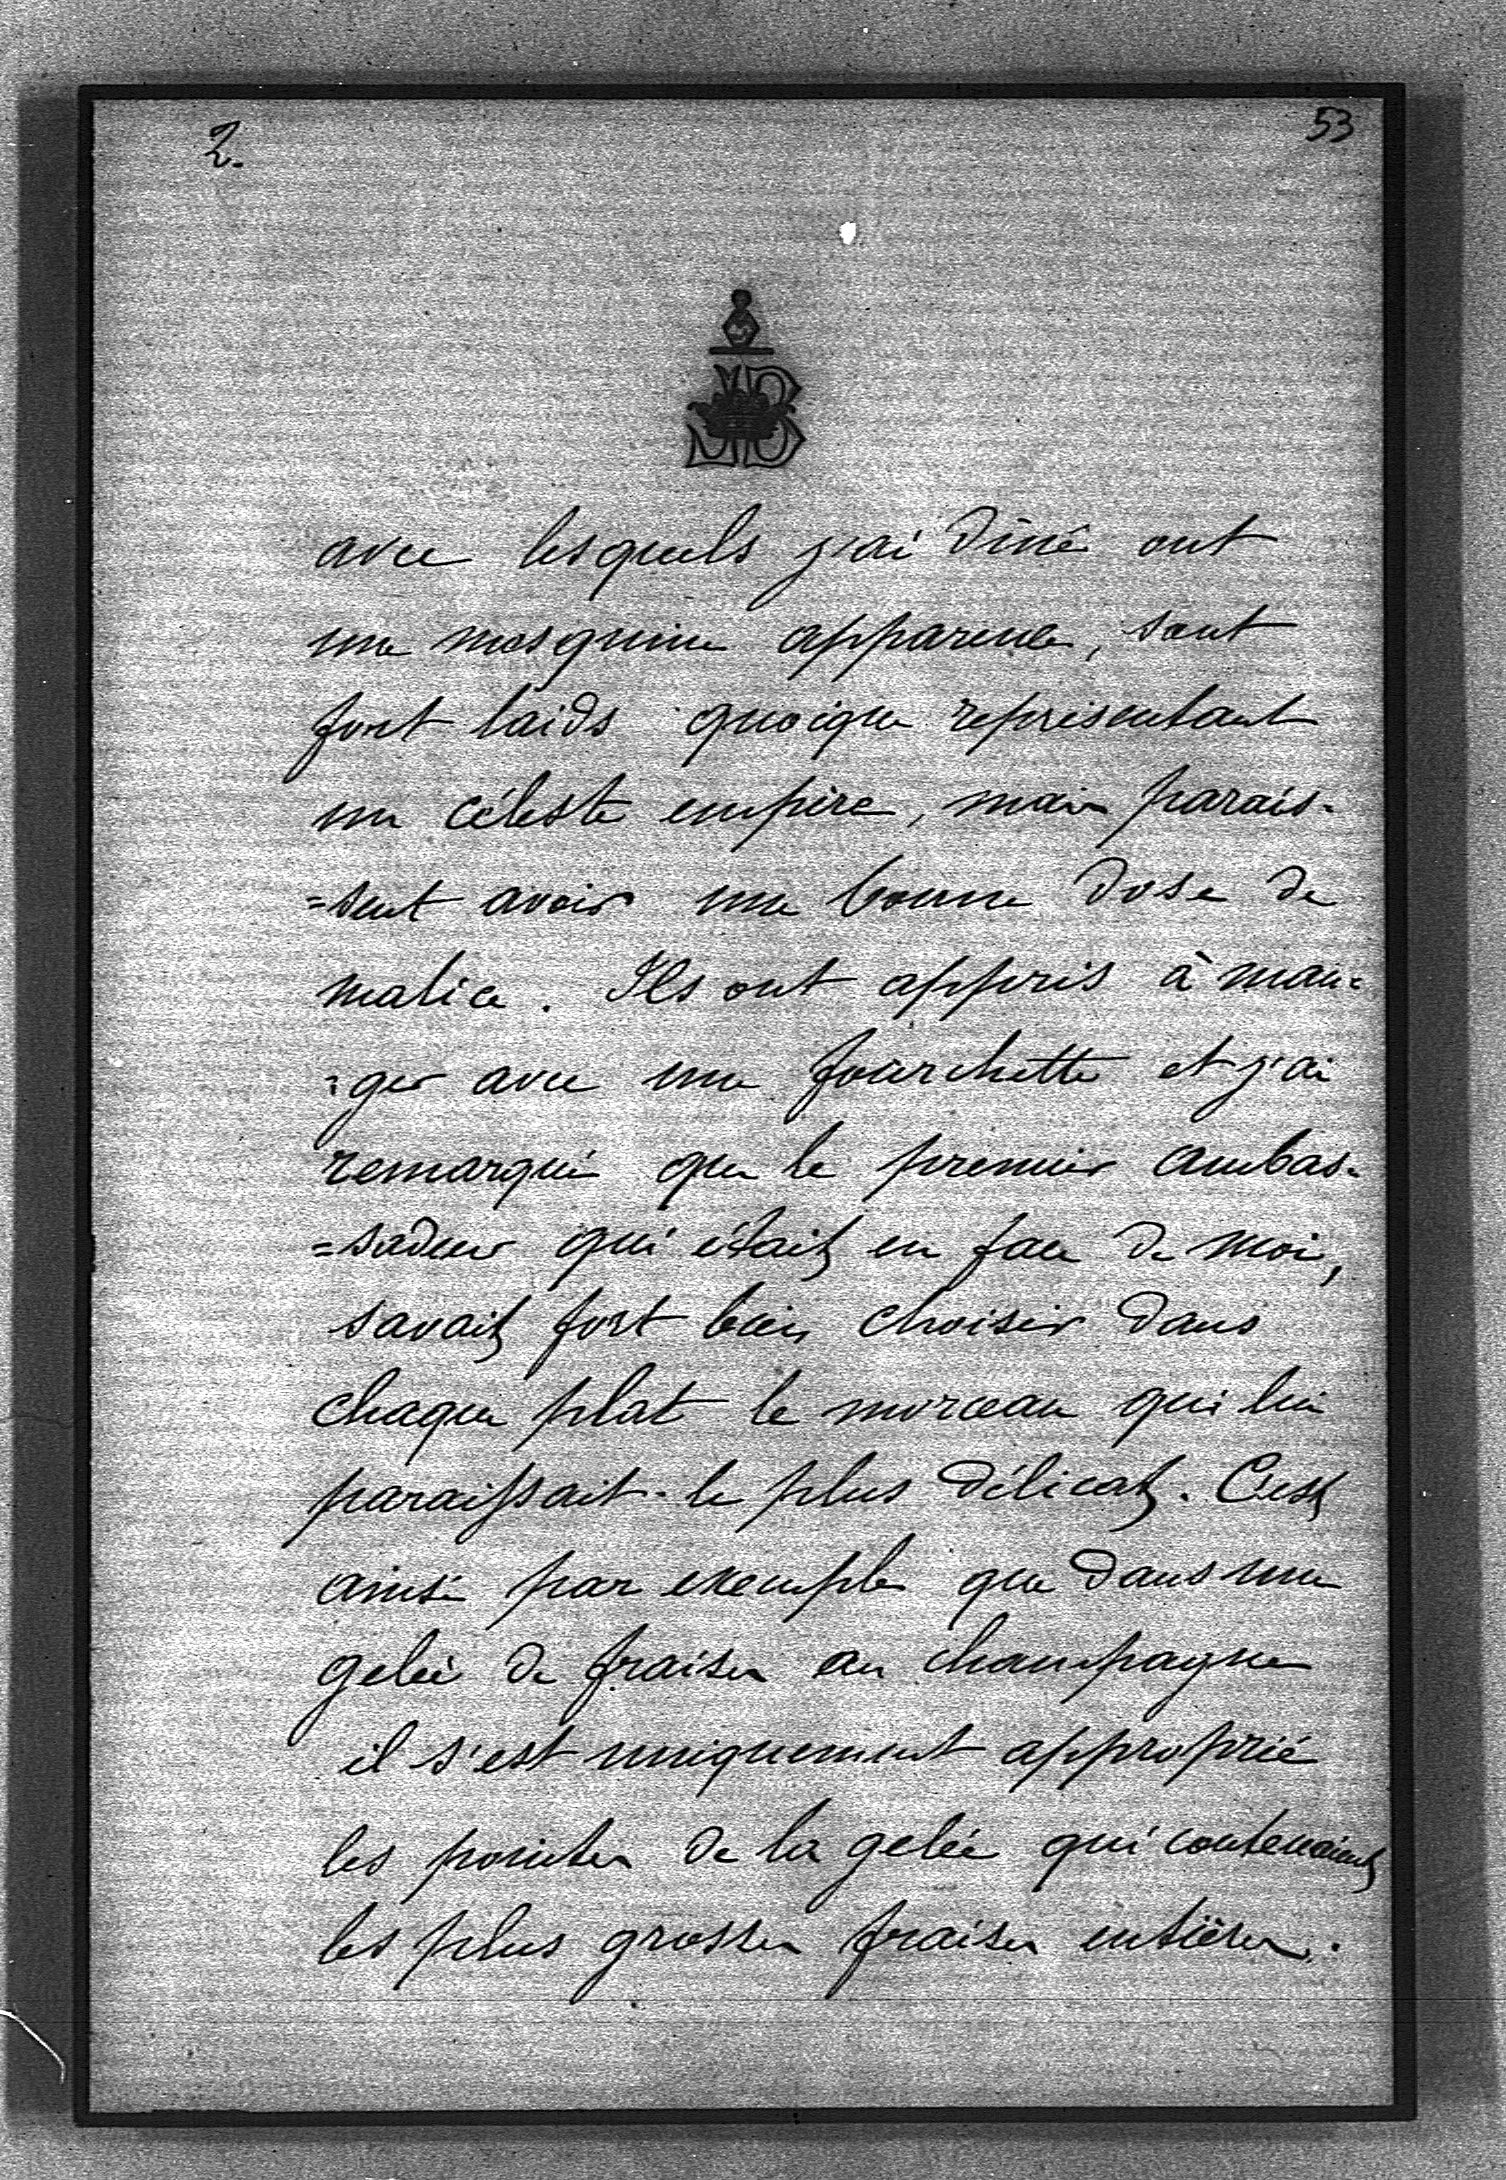 2.
53
JB
avec lesquels j'ai dîné ont
une mesquine apparence, sont
fort laids quoique représentant
un céleste empire, mais parais-
=sent avoir une bonne dose de
malice. Ils ont appris à man=
=ger avec une fourchette et j'ai
remarqué que le premier ambas-
=sadeur qui était en face de moi,
savait fort bien choisir dans
chaque plat le morceau qui lui
paraissait le plus délicat. C'est
ainsi par exemple que dans une
gelée de fraises au champagne
il s'est uniquement approprié
les pointes de la gelée qui contenaient
les plus grosses fraises entières.